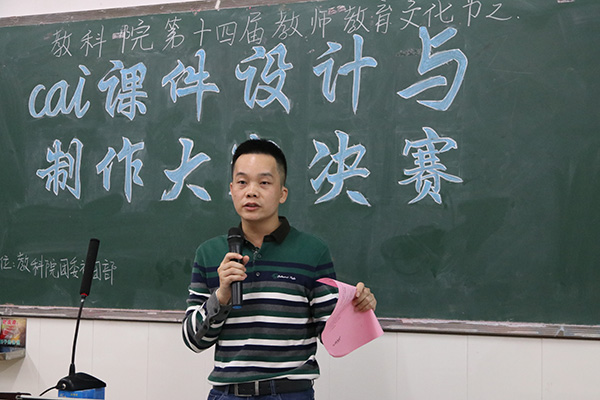 教科院第十四届教师教育文化节之
cai课件设计与
制作大赛决赛
位:教科院团委